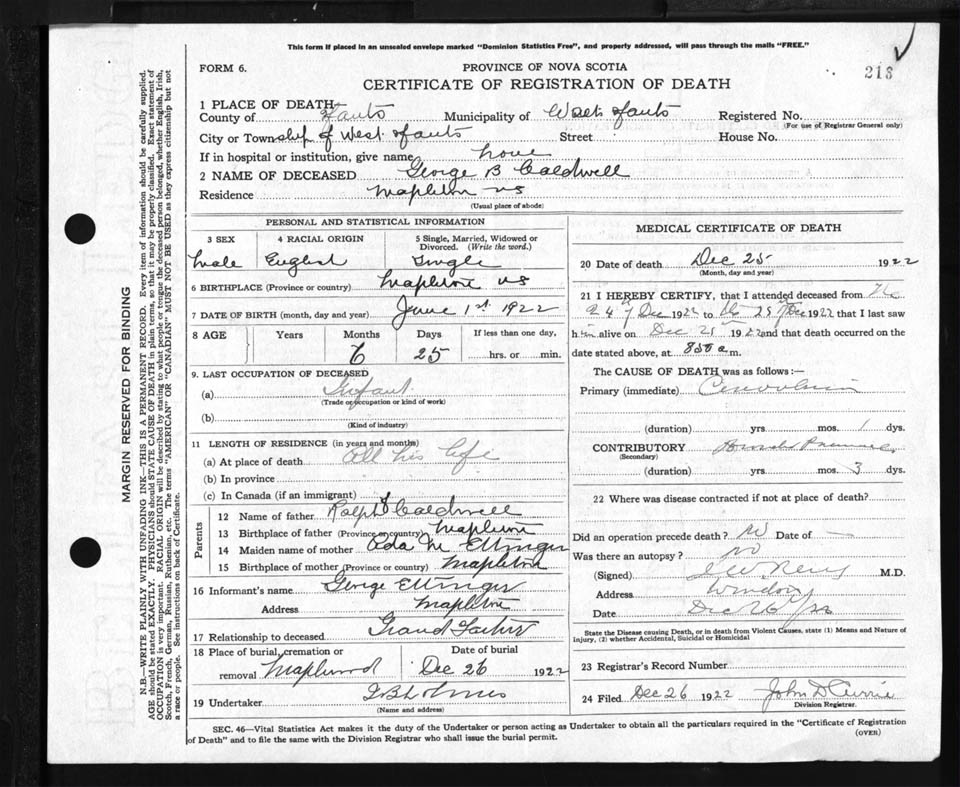 This form if placed in an unsealed envelope marked "Dominion Statistics Free", and properly addressed, will pass through the mails "FREE."
213
FORM 6.
PROVINCE OF NOVA SCOTIA
CERTIFICATE OF REGISTRATION OF DEATH
1 PLACE OF DEATH—
County of Hants Municipality of West Hants Registered No.
(For use of Registrar General only)
City or Township of West Hants Street House No.
If in hospital or institution, give name home
2 NAME OF DECEASED George B Caldwell
Residence Mapleton NS
(Usual place of abode)
PERSONAL AND STATISTICAL INFORMATION
3 SEX 4 RACIAL ORIGIN 5 Single, Married, Widowed or Divorced. (Write the word.)
Male English Single
6 BIRTHPLACE (Province or country) Mapleton NS
7 DATE OF BIRTH (month, day and year) June 1st 1922
8 AGE Years Months Days If less than one day,
6 25 hrs. or min.
9. LAST OCCUPATION OF DECEASED
(a) Infant
(Trade or occupation or kind of work)
(b)
(Kind of industry)
11 LENGTH OF RESIDENCE (in years and months)
(a) At place of death All his life
(b) In province
(c) In Canada (if an immigrant)
Parents
12 Name of father Ralph Caldwell
13 Birthplace of father (Province or country) Mapleton
14 Maiden name of mother Ada M Ettinger
15 Birthplace of mother (Province or country) Mapleton
16 Informant's name George Ettinger
Address Mapleton
17 Relationship to deceased Grand Father
18 Place of burial, cremation or removal Date of burial
Maplewood Dec 26 1922
19 Undertaker
(Name and address)
MEDICAL CERTIFICATE OF DEATH
20 Date of death Dec 25 1922
(Month, day and year)
21 I HEREBY CERTIFY, that I attended deceased from the
24th Dec 1922 to the 25th Dec 1922 that I last saw
him alive on Dec 25 1922 and that death occurred on the
date stated above, at 850 a m.
The CAUSE OF DEATH was as follows:—
Primary (immediate)
(duration) yrs. mos. 1 dys.
CONTRIBUTORY
(Secondary)
(duration) yrs. mos. 3 dys.
22 Where was disease contracted if not at place of death?
Did an operation precede death? No Date of —
Was there an autopsy? No
(Signed) M.D.
Address Windsor
Date Dec 26/22
State the Disease causing Death, or in death from Violent Causes, state (1) Means and Nature of
Injury, (2) whether Accidental, Suicidal or Homicidal
23 Registrar's Record Number
24 Filed Dec 26 1922 John D Currie
Division Registrar.
SEC. 46—Vital Statistics Act makes it the duty of the Undertaker or person acting as Undertaker to obtain all the particulars required in the "Certificate of Registration
of Death" and to file the same with the Division Registrar who shall issue the burial permit.
(OVER)
MARGIN RESERVED FOR BINDING
N.B.—WRITE PLAINLY WITH UNFADING INK—THIS IS A PERMANENT RECORD. Every item of information should be carefully supplied.
AGE should be stated EXACTLY. PHYSICIANS should STATE CAUSE OF DEATH in plain terms, so that it may be properly classified. Exact statement of
OCCUPATION is very important. RACIAL ORIGIN will be described by stating to what people or tongue the deceased person belonged, whether English, Irish,
Scotch, French, German, Russian, Ruthenian, etc. The terms "AMERICAN" OR "CANADIAN" MUST NOT BE USED as they express citizenship but not
a race or people. See instructions on back of Certificate.